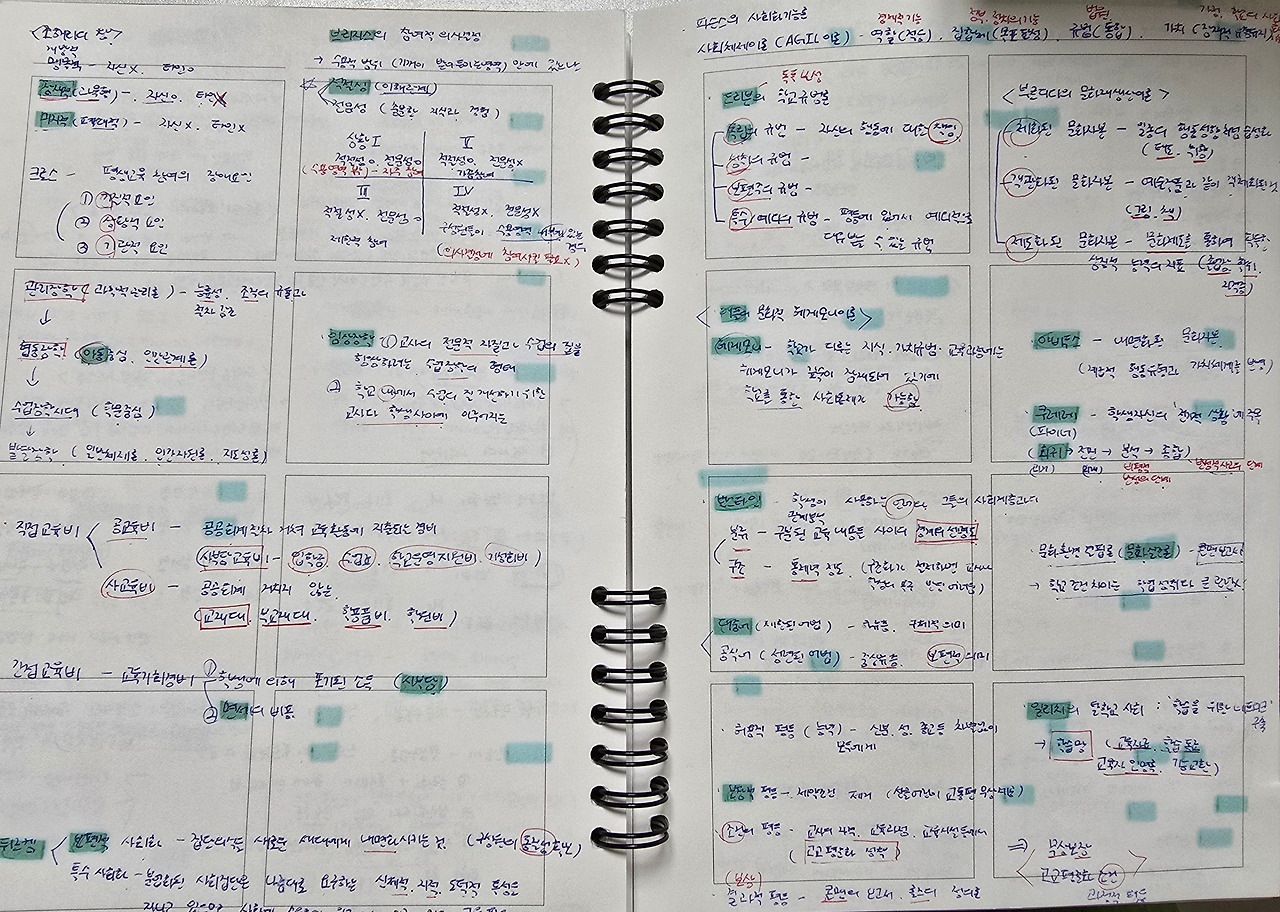 <조하리의 창>
개방적
맹목적 - 자신X, 타인O
잠재적(과묵형) - 자신O, 타인X
미지적(폐쇄적) - 자신X, 타인X
크로스 - 평생교육 참여의 장애요인
① 기질적 요인
② 상황적 요인
③ 기관적 요인
브리지스의 참여적 의사결정
→ 수용적 범위 (기꺼이 받아들이는 영역) 안에 있느냐
적절성 (이해관계)
전문성 (충분한 지식과 경험)
상황 I
적절성O, 전문성O
(수용영역 밖) - 자주 참여
II
적절성O, 전문성X
가끔참여
III
적절성X, 전문성O
제한적 참여
IV
적절성X, 전문성X
구성원들이 수용영역 내부에 있는 경우
(의사결정에 참여시킬 필요X)
관리장학 (과학적관리론) - 능률성,
↓
협동장학 (아동중심, 인간관계론)
↓
수업장학시대 (학문중심)
↓
발달장학 (인간자원론, 지도성론)
임상장학 ① 교사의 전문적 자질과 수업의 질을
향상하려는 수업장학의 형태
② 학교 내에서 수업의 질 개선하기 위한
교사와 학생 사이에 이루어지는
직접교육비
공교육비 - 공공회계절차 거쳐 교육활동에 지출되는 경비
사부담교육비 - 입학금, 수업료, 학교운영지원비, 기성회비)
사교육비 - 공공회계 거치지 않는
(교재대, 부교재대, 학용품비, 학원비)
간접교육비 - 교육기회경비
① 학생에 의해 포기된 소득 (사부담)
② 면세의 비용
뒤르켐
보편적 사회화 - 집단의식을 새로운 세대에게 내면화시키는 것 (구성원의 동질성 확보)
특수 사회화 - 분화된 사회집단은 나름대로 요구하는 신체적, 지적, 도덕적 특성을
파슨스의 사회화기능론
경제적기능
정부, 정치의 기능
법원
가정, 학교의 사회화
사회체제이론 (AGIL이론) - 역할(적응), 집합체(목표달성), 규범(통합), 가치
드리븐의 학교규범론
독특보성
독립의 규범 - 자신의 행동에 대한 책임
성취의 규범 -
보편주의 규범 -
특수/예외의 규범 - 평등에 입각서 예외적으로
대우받을 수 있는 규범
<부르디외의 문화재생산이론>
체화된 문화자본 - 일종의 행동성향처럼 습성화
(태도, 취향)
객관화된 문화자본 - 예술작품과 같이 객체화된 것
(그림, 책)
제도화된 문화자본 - 문화제도를 통하여 획득한
상징적 능력의 지표 (졸업장, 학위,
자격증)
<애플의 문화적 헤게모니이론>
헤게모니 - 학교가 다루는 지식, 가치규범, 교육과정에는
헤게모니가 깊숙이 잠재되어 있기에
학교를 통한 사회통제가 가능함
아비투스 - 내면화된 문화자본
(계급적 행동유형과 가치체계를 반영)
쿠레레 - 학생자신의 '전기적 상황'에 주목
(파이너)
(회귀 → 전진 → 분석 → 종합)
(과거) (미래)
번스타인 - 학생이 사용하는 언어와 그들의 사회계층과의
관계분석
분류 - 구분된 교육내용들 사이의 경계의 선명도
구조 - 통제의 정도
대중어 (제한된 어법) - 하류층, 구체적 의미
공식어 (정련된 어법) - 중상류층, 보편적 의미
문화환경 결핍론 (문화실조론) - 콜맨보고서
→ 학교조건 차이는 학업성취와 큰 관련X
허용적 평등 (능력) - 신분, 성, 종교 등 차별없이
모두에게
보장적 평등 - 제약조건 제거
조건의 평등 - 교사의 자격, 교육과정, 교육시설 등에서
(고교평준화 정책)
(보상)
결과적 평등 - 콜맨의 보고서, 롤스의 정의론
일리치의 탈학교 사회 : '학습을 위한 네트워크'
구축
→ 학습망 (교육자료, 학습 동료
교육자 인명록, 기능교환)
⇒ 무상보장
고교평준화 조건
과정적 평등